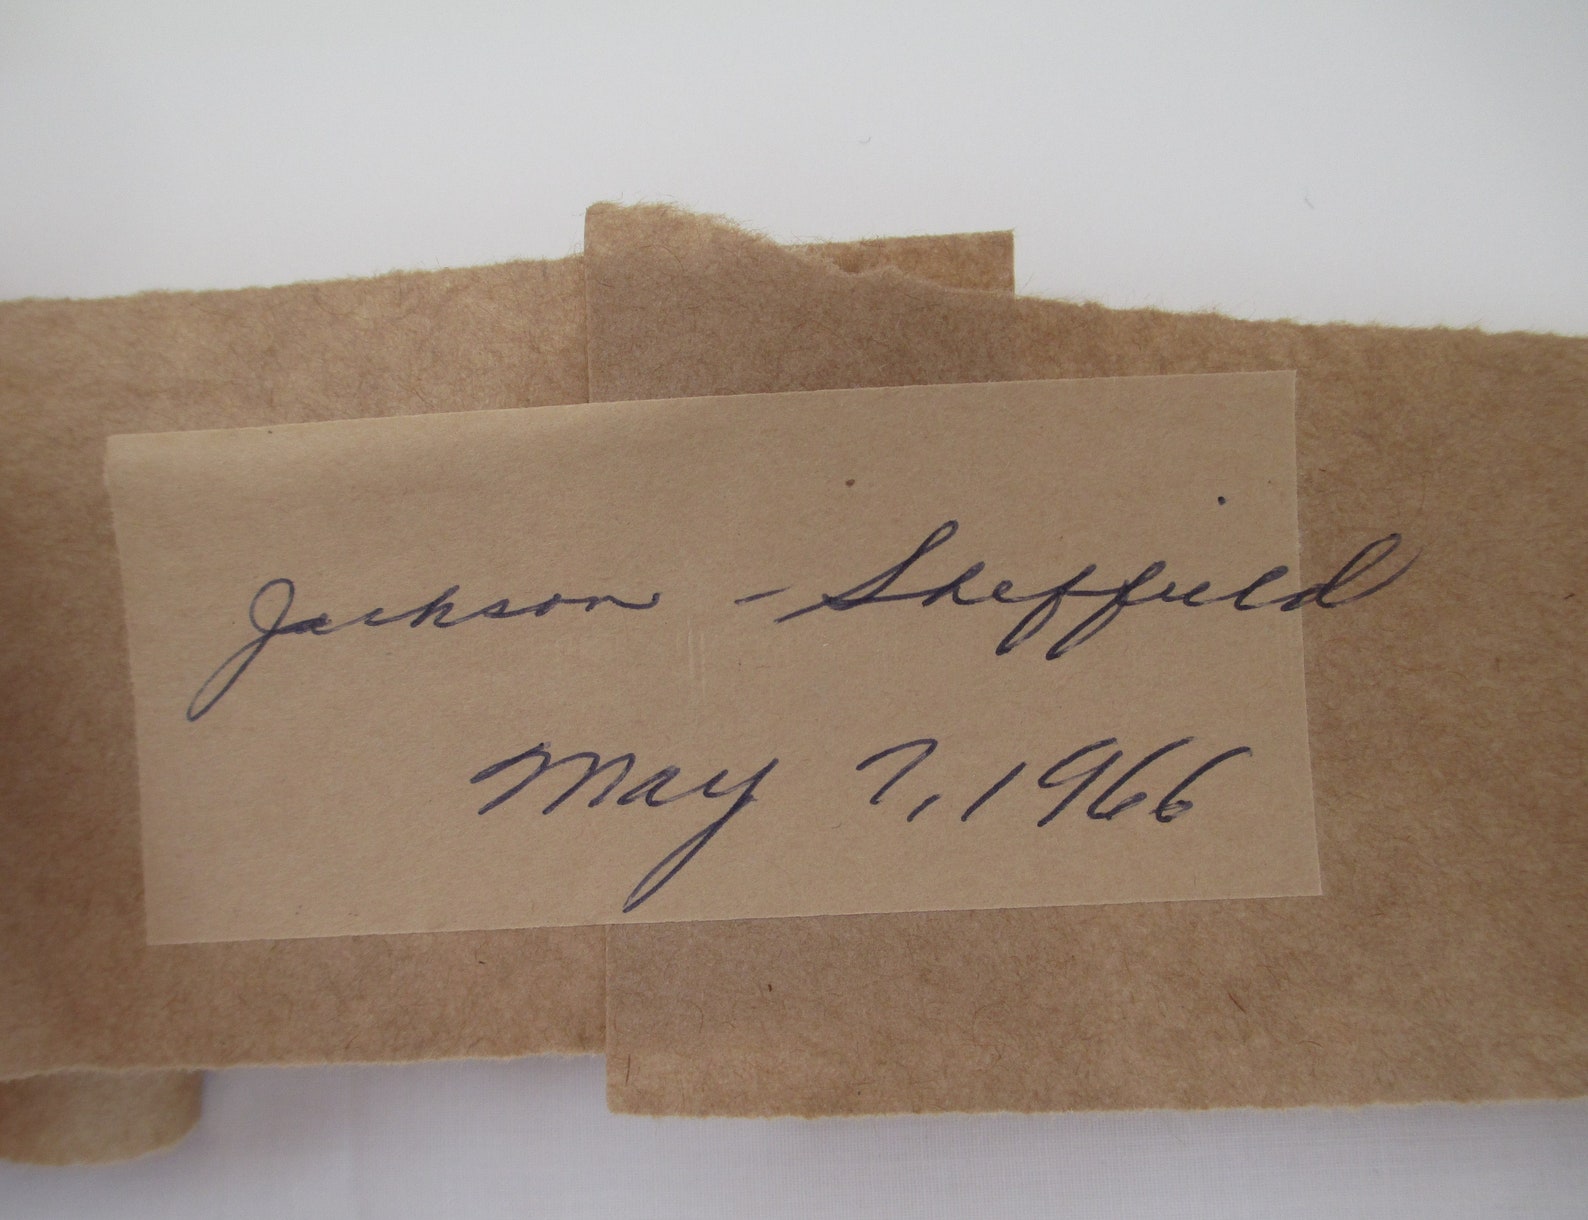 Jackson - Sheffield
May 7, 1966